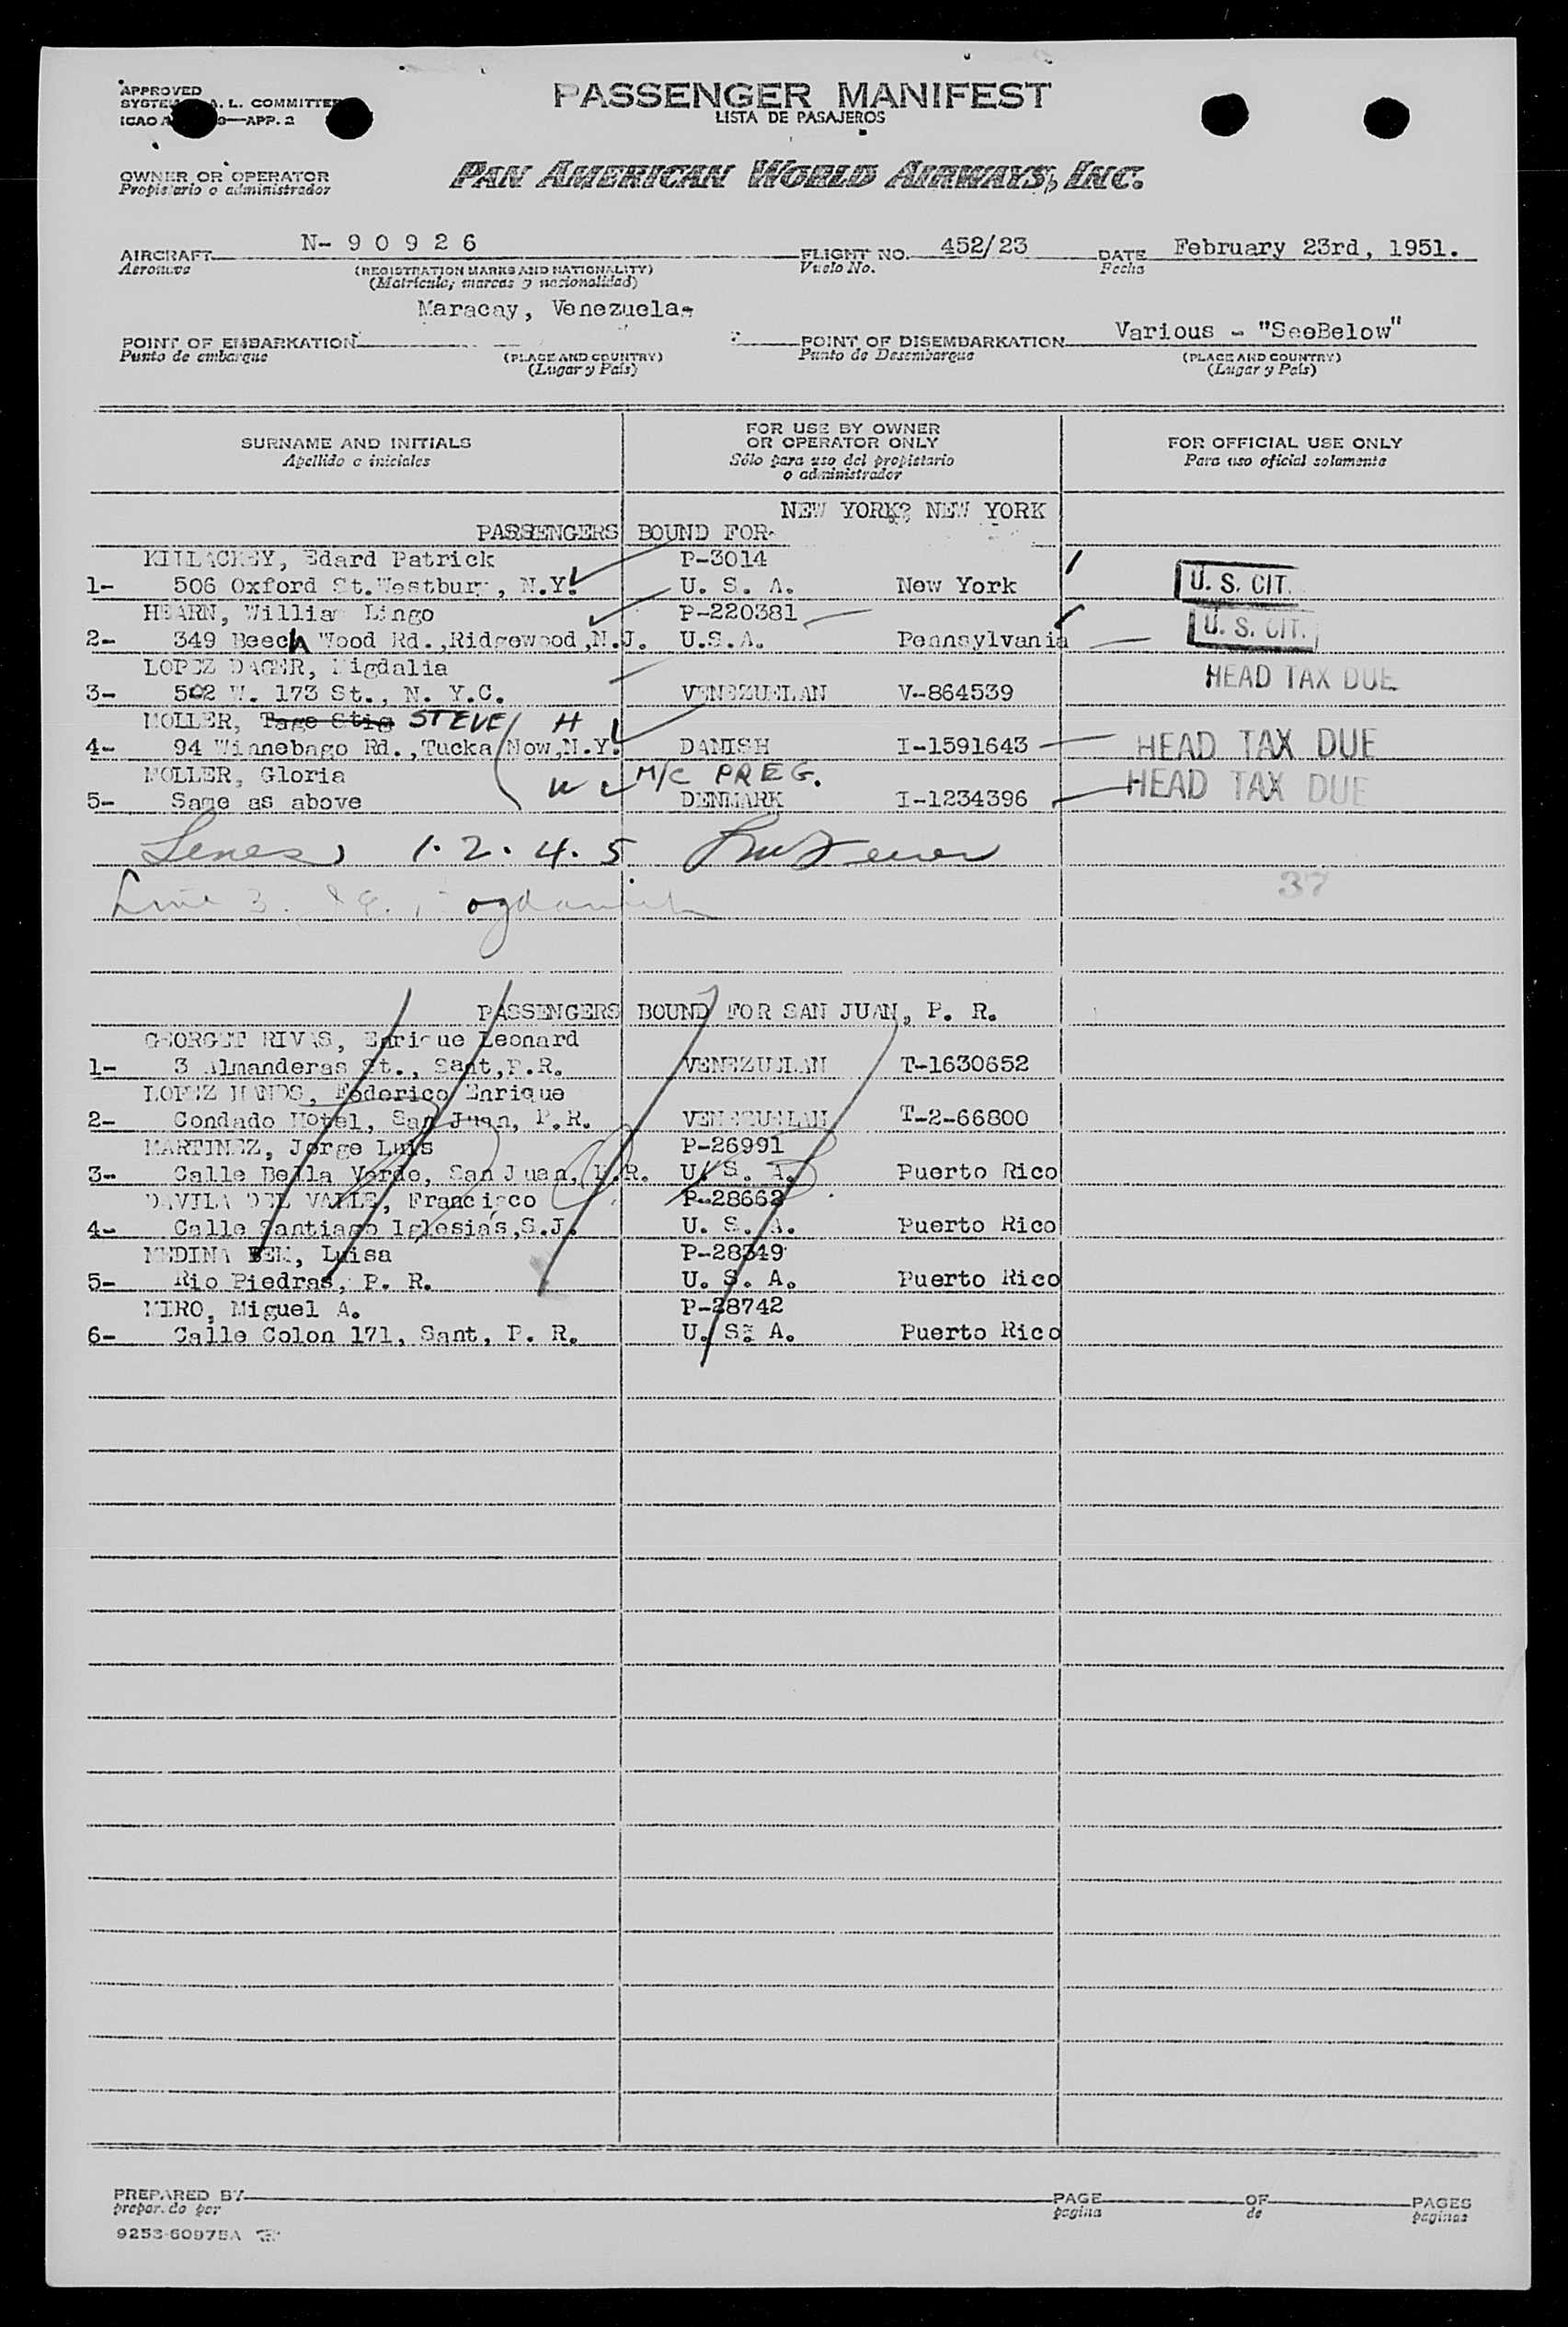 APPROVED
SYSTEM A. L. COMMITTEE
ICAO A 9—APP. 2
PASSENGER MANIFEST
LISTA DE PASAJEROS
OWNER OR OPERATOR
Propietario o administrador
PAN AMERICAN WORLD AIRWAYS, INC.
AIRCRAFT N- 9 0 9 2 6 FLIGHT NO. 452/23 DATE February 23rd, 1951.
Aeronave (REGISTRATION MARKS AND NATIONALITY) Vuelo No. Fecha
(Matricula, marcas y nacionalidad)
Maracay, Venezuela
POINT OF EMBARKATION POINT OF DISEMBARKATION Various - "SeeBelow"
Punto de embarque (PLACE AND COUNTRY) Punto de Desembarque (PLACE AND COUNTRY)
(Lugar y País) (Lugar y País)
SURNAME AND INITIALS FOR USE BY OWNER OR OPERATOR ONLY FOR OFFICIAL USE ONLY
Apellido e iniciales Sólo para uso del propietario o administrador Para uso oficial solamente
NEW YORK? NEW YORK
PASSENGERS BOUND FOR-
KILLACKEY, Edard Patrick P-3014
1- 506 Oxford St.Westbury, N.Y. U. S. A. New York U. S. CIT.
HEARN, Willia Lingo P-220381
2- 349 Beech Wood Rd.,Ridgewood,N.J. U.S.A. Pennsylvania U. S. CIT.
LOPEZ DAGER, Migdalia
3- 502 W. 173 St., N. Y.C. VENEZUELAN V-864539 HEAD TAX DUE
MOLLER, Tage Stig STEVE H
4- 94 Winnebago Rd.,Tucka How,N.Y. DANISH I-1591643 HEAD TAX DUE
MOLLER, Gloria W M/C PREG.
5- Same as above DENMARK I-1234396 HEAD TAX DUE
Lines 1. 2. 4. 5
Line 3.
37
PASSENGERS BOUND FOR SAN JUAN, P. R.
GEORGET RIVAS, Enrique Leonard
1- 3 Almanderas St., Sant,P.R. VENEZUELAN T-1630652
LOPEZ HANDS, Federico Enrique
2- Condado Hotel, San Juan, P.R. VENEZUELAN T-2-66800
MARTINEZ, Jorge Luis P-26991
3- Calle Bella Verde, San Juan, P.R. U. S. A. Puerto Rico
DAVILA DEL VALLE, Francisco P-28662
4- Calle Santiago Iglesias,S.J. U. S. A. Puerto Rico
MEDINA BEM, Luisa P-28349
5- Rio Piedras, P. R. U. S. A. Puerto Rico
MIRO, Miguel A. P-28742
6- Calle Colon 171, Sant, P. R. U. S. A. Puerto Rico
PREPARED BY PAGE OF PAGES
preparado por pagina de paginas
9253-60975A